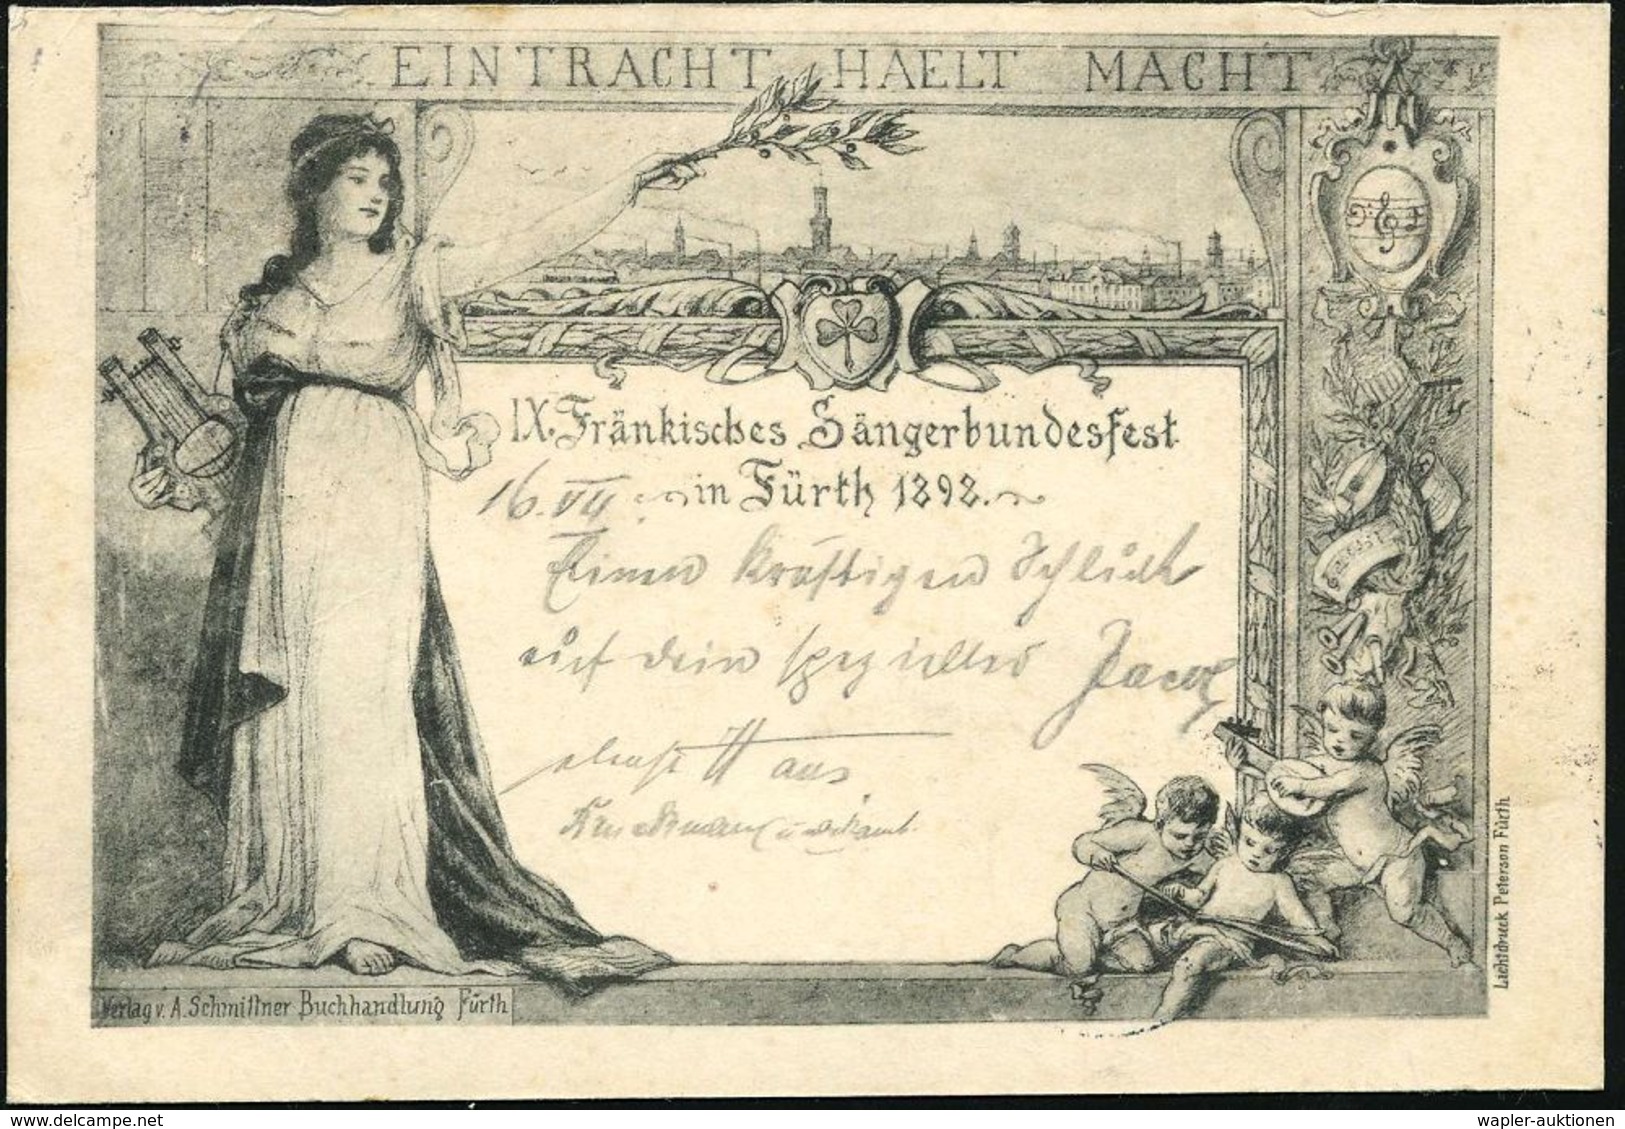 EINTRACHT HAELT MACHT
IX. Fränkisches Sängerbundesfest
16. VII. in Fürth 1898.
Einen kräftigen Schluck
auf dein spezielles
Haus
Verlag v. A. Schmittner Buchhandlung Fürth
Lichtdruck Peterson Fürth.
delcampe.net
wapler-auktionen